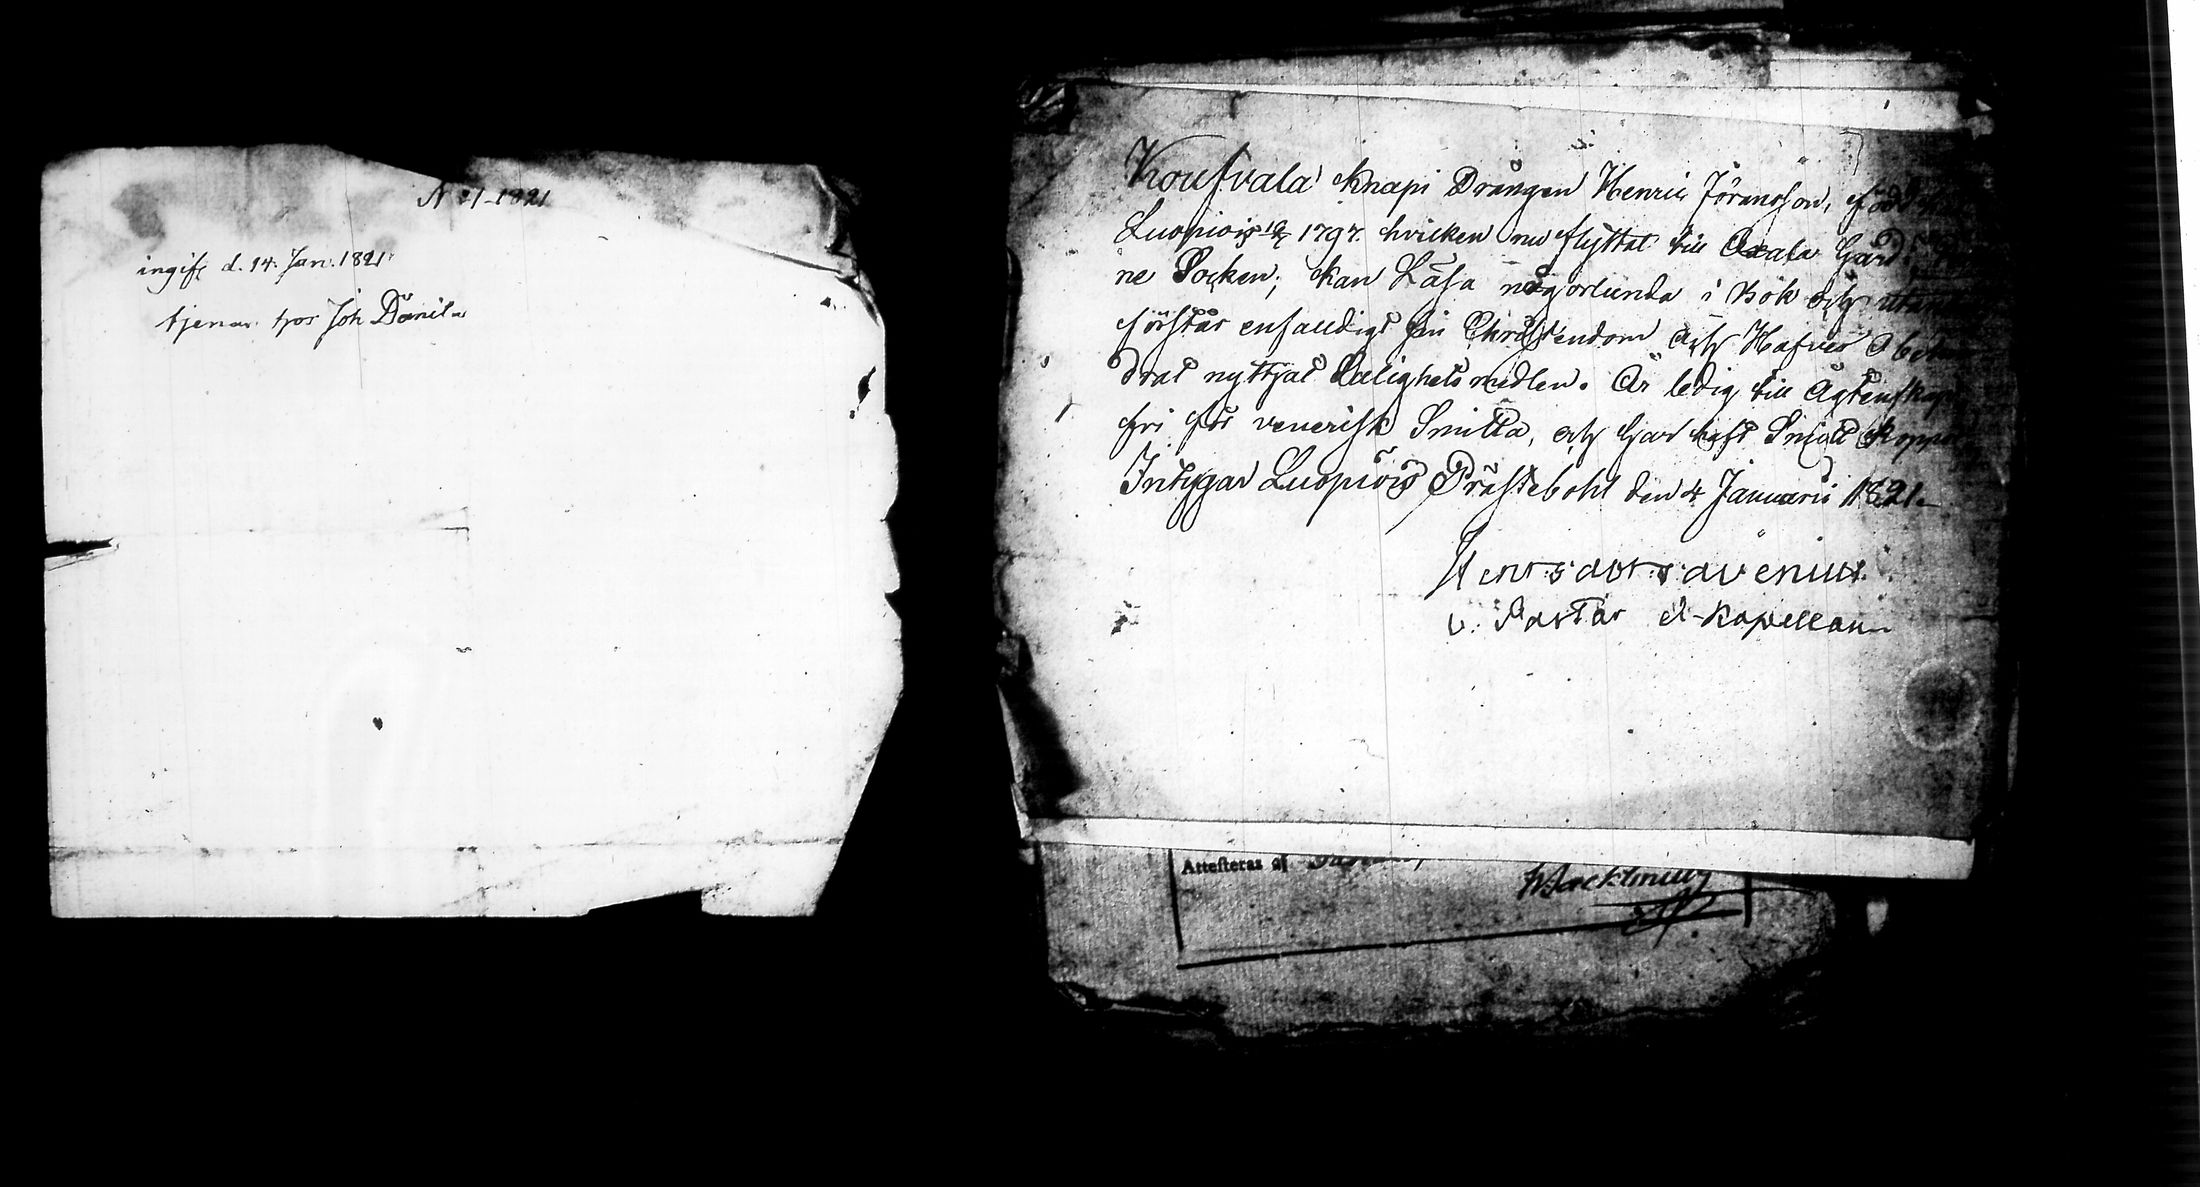 N:1-1821
ingift d. 14. Jan. 1821.
tjenar hos Joh Danila
Koufvala Knapi Drängen Henric Jöransson, född
Luopiois 1797. hvilken nu flyttat till Gård
ne Socken; kan Läsa någorlunda i Bok och utan
förstår enfaldigt sin Christendom och Hafver obehin
drat nyttjat Salighets medlen. Är ledig till Ägtenskap
fri för venerisk Smitta, och har haft Små Koppor
Intygar Luopiois Prästebohl den 4 Januarii 1821.
v. Pastor Kapellan
Attesteras af